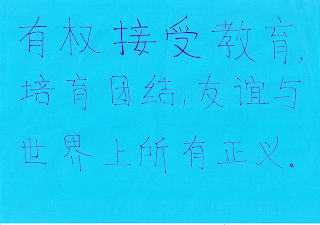 有权接受教育,
培育团结,友谊与
世界上所有正义。